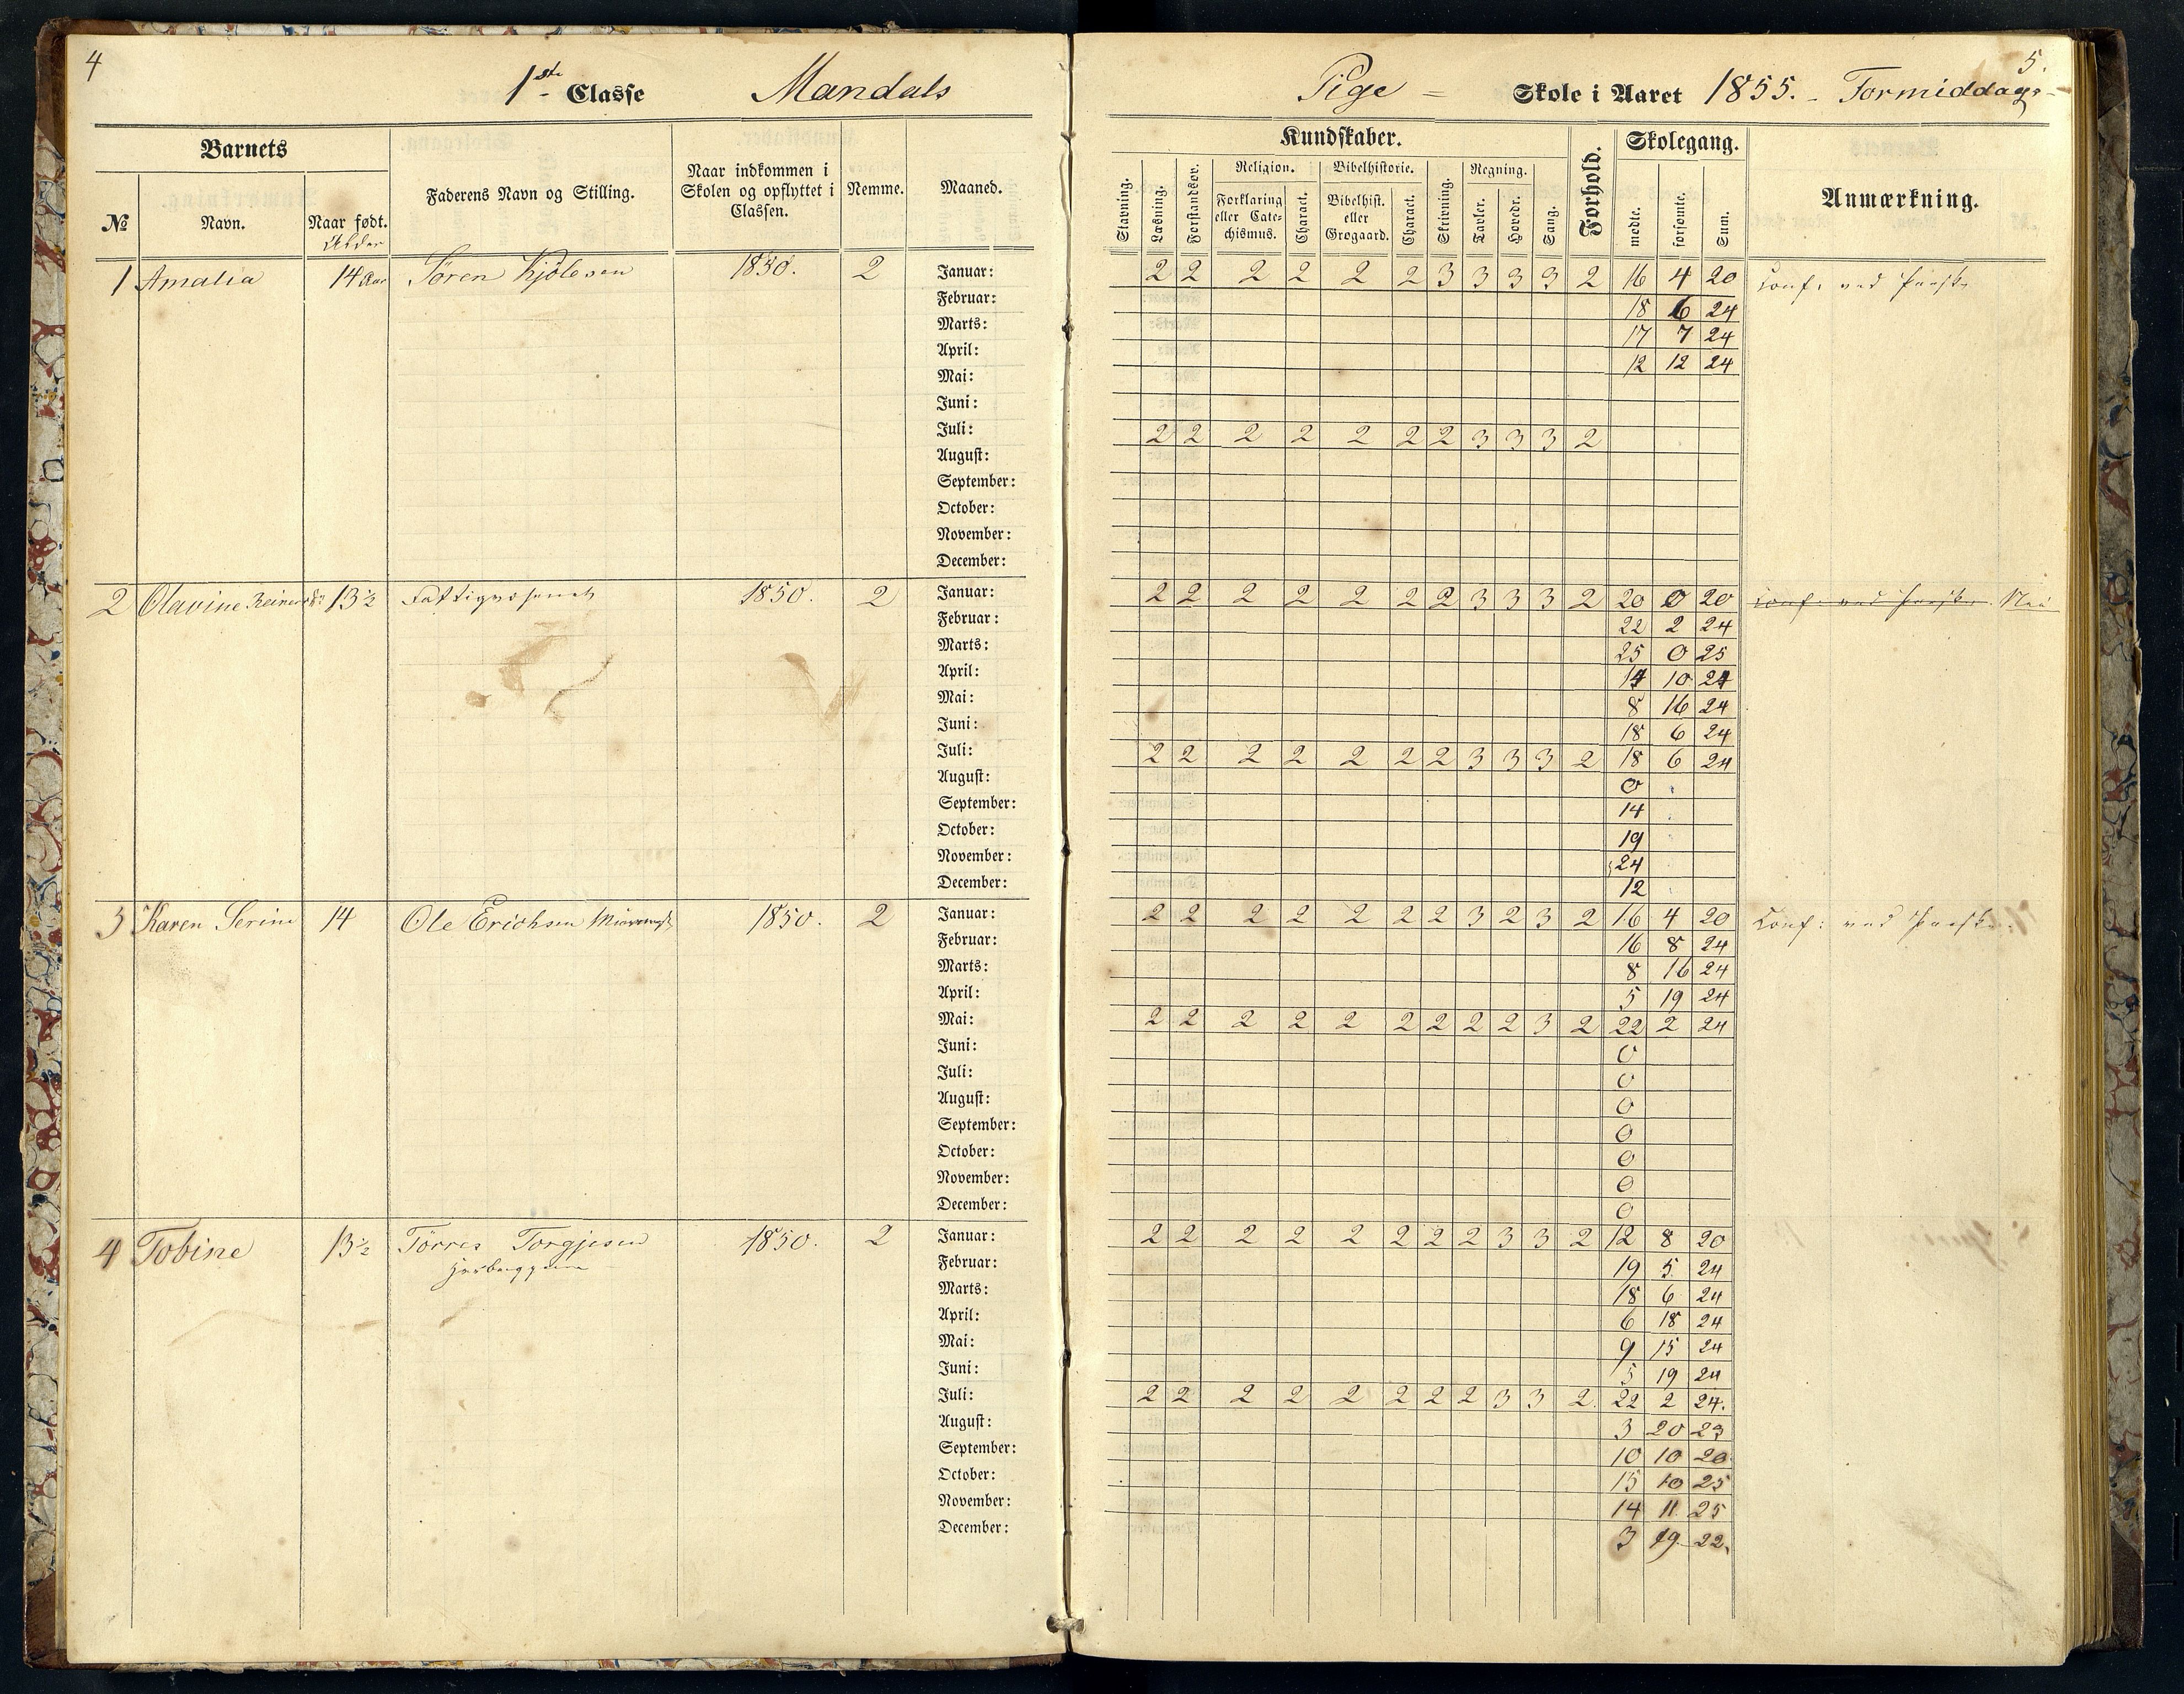 4
1ste Classe Mandals
Barnets
№
Navn.
Naar født.
Alder
Faderens Navn og Stilling.
Naar indkommen i
Skolen og opflyttet i
Classen.
Nemme.
Maaned.
1 Amalia 14 Aar Sören Kjölesen 1850. 2
Januar:
Februar:
Marts:
April:
Mai:
Juni:
Juli:
August:
September:
October:
November:
December:
2 Olavine 13½ Fattigvæsenet 1850. 2
Januar:
Februar:
Marts:
April:
Mai:
Juni:
Juli:
August:
September:
October:
November:
December:
3 Karen Serine 14 Ole Erichsen 1850. 2
Januar:
Februar:
Marts:
April:
Mai:
Juni:
Juli:
August:
September:
October:
November:
December:
4 Tobine 13½ Törres Torgjesen 1850. 2
Januar:
Februar:
Marts:
April:
Mai:
Juni:
Juli:
August:
September:
October:
November:
December:
5.
Pige = Skole i Aaret 1855. - Formiddags-
Kundskaber.
Forhold.
Skolegang.
Anmærkning.
Stavning.
Læsning.
Forstandsøv.
Religion.
Forklaring
eller Cate-
chismus.
Charact.
Bibelhistorie.
Bibelhist.
eller
Grøgaard.
Charact.
Skrivning.
Regning.
Tavler.
Hovedr.
Sang.
mødte.
forsømte.
Sum.
2 2 2 2 2 2 3 3 3 3 2 16 4 20 Conf: ved Paaske
18 6 24
17 7 24
12 12 24
2 2 2 2 2 2 2 3 3 3 2
2 2 2 2 2 2 2 3 3 3 2 20 0 20 Conf: ved Paaske. Nei
22 2 24
25 0 25
14 10 24
8 16 24
18 6 24
2 2 2 2 2 2 2 3 3 3 2 18 6 24
0
14
19
24
12
2 2 2 2 2 2 2 3 2 3 2 16 4 20 Conf: ved Paaske.
16 8 24
8 16 24
5 19 24
2 2 2 2 2 2 2 2 2 3 2 22 2 24
0
0
0
0
0
0
0
2 2 2 2 2 2 2 2 3 3 2 12 8 20
19 5 24
18 6 24
6 18 24
9 15 24
5 19 24
2 2 2 2 2 2 2 2 3 3 2. 22 2 24.
3 20 23
10 10 20
15 10 25
14 11 25
3 19 22